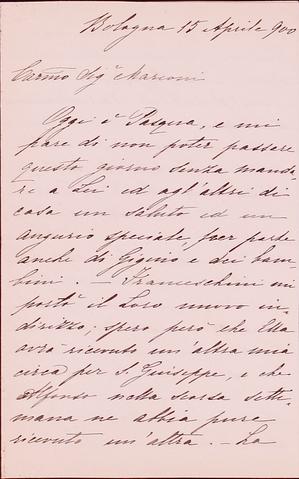 Bologna 15 Aprile 900
Carmo Sigr Marconi
Oggi è Pasqua, e mi
pare di non poter passare
questo giorno senza manda-
re a Lei ed agl'altri di
casa un saluto ed un
augurio speciale, per parte
anche di Gigino e dei bam-
bini. — Franceschini mi
portò il Loro nuovo in-
dirizzo; spero però che Ella
avrà ricevuto un'altra mia
circa per S. Giuseppe, e che
Alfonso nella scorsa sette-
mana ne abbia pure
ricevuto un'altra. — La